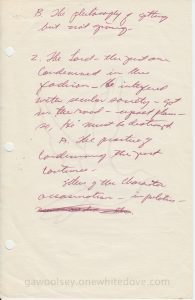 B. The philosophy of getting
but not giving -
2. The Lord - the just one
Condemned in this
fashion - He interfered
with secular society - got
in the road - upset plans -
so, He must be destroyed
A. The practice of
condemning the just
continues.
of the character
assassination - in politics -
gawoolsey.onewhitedove.com